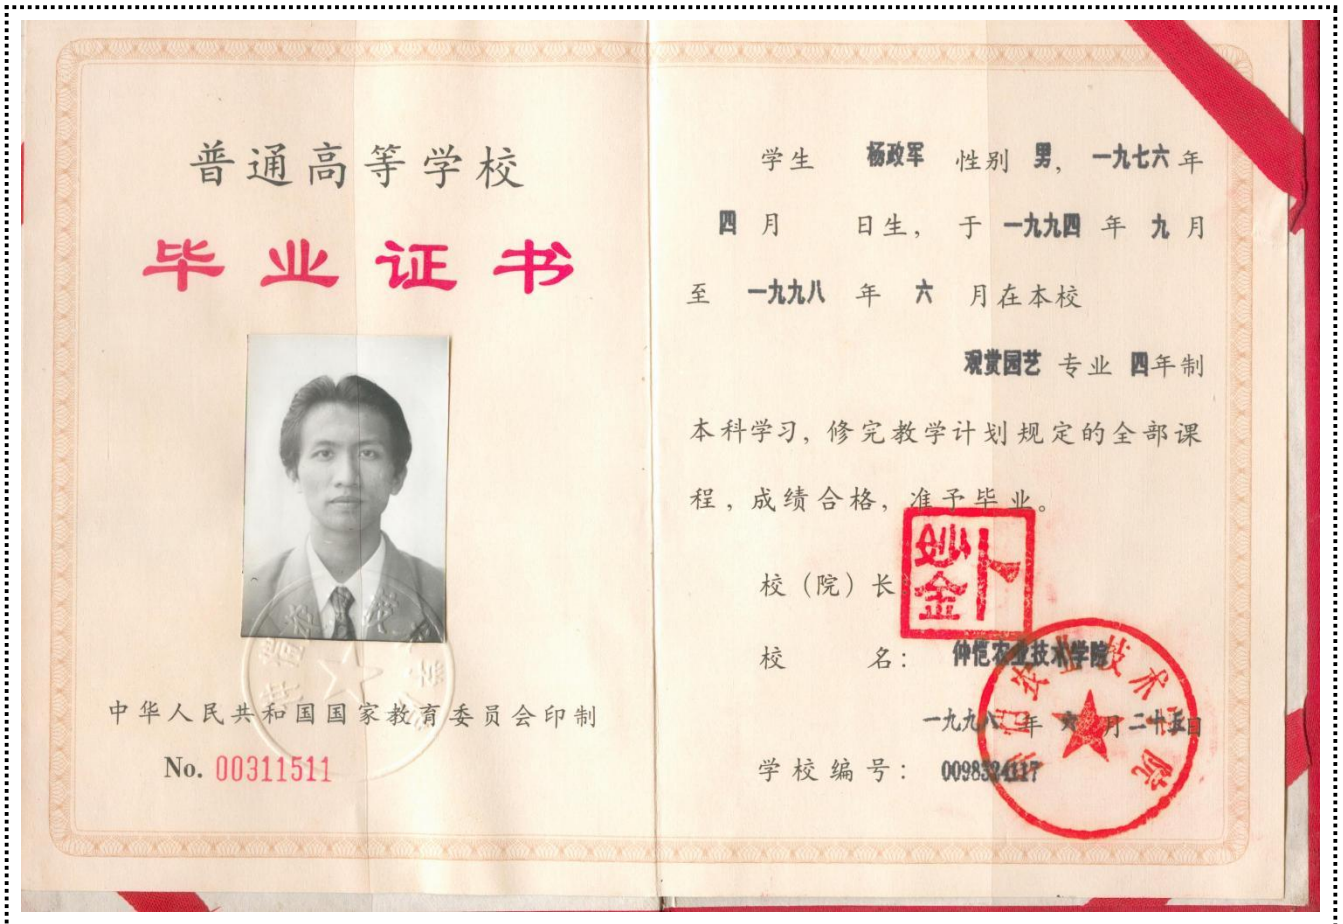 普通高等学校
毕业证书
中华人民共和国国家教育委员会印制
No. 00311511
学生 杨政军 性别 男, 一九七六年
四月 日生, 于 一九九四 年 九月
至 一九九八 年 六 月在本校
观赏园艺 专业 四年制
本科学习, 修完教学计划规定的全部课
程, 成绩合格, 准予毕业。
校(院)长:
卜妙金
校 名: 仲恺农业技术学院
一九九八 年 六 月二十五日
学校编号:
农业技术学院